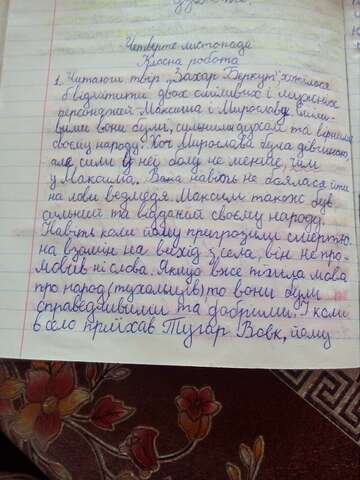 Четверте листопада
Класна робота
1. Читаючи твір "Захар Беркут" хотілося
б відмітити двох сміливих і мужніх
персонажів - Максима і Мирославу. Смили-
вими вони були, сильними духом та вірними
своєму народу. Хоч Мирослава була дівчиною,
але сили у неї було не менше, чим
у Максима. Вона навіть не боялася йти
на лови ведмедя. Максим також був
сильний та відданий своєму народу.
Навіть коли йому пригрозили смертю
на взамін на вихід з села, він не про-
мовив ні слова. Якщо вже пішла мова
про народ (тухольців), то вони були
справедливими та добрими. І коли
в село приїхав Тугар Вовк, йому